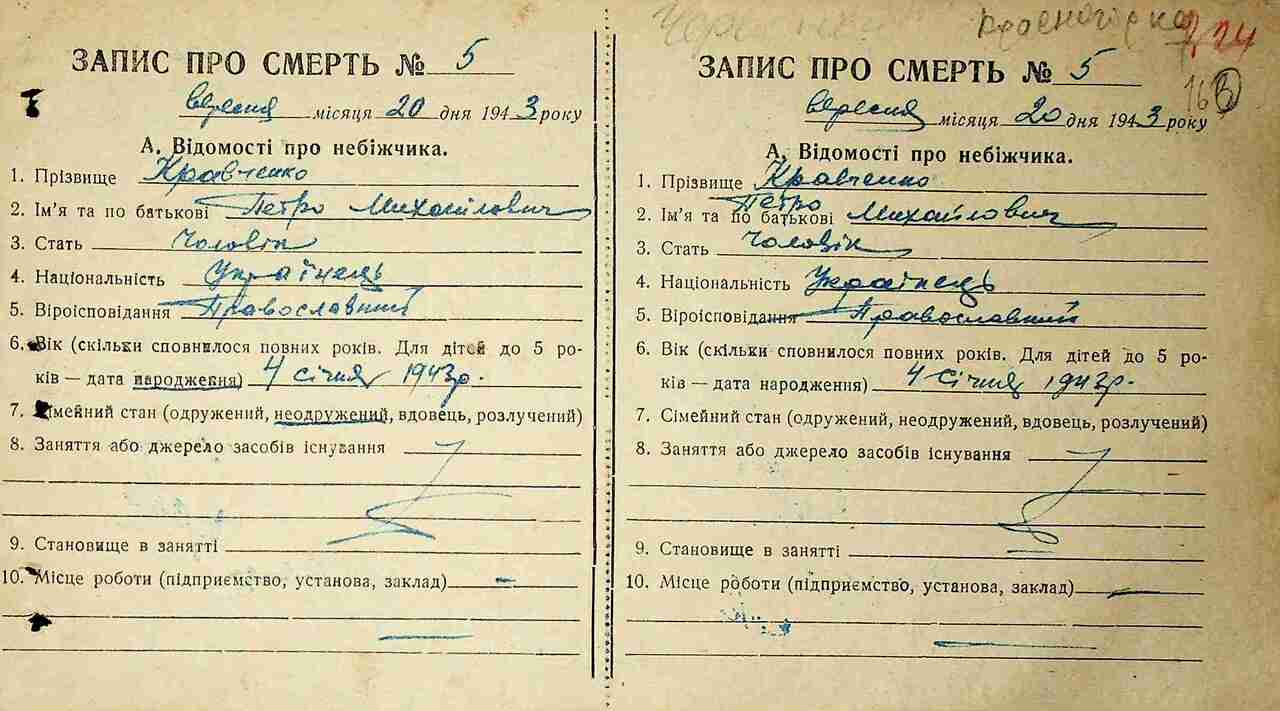 ЗАПИС ПРО СМЕРТЬ № 5
вересня місяця 20 дня 1943 року
А. Відомості про небіжчика.
1. Прізвище Кравченко
2. Ім'я та по батькові Петро Михайлович
3. Стать Чоловік
4. Національність Українець
5. Віроісповідання Православний
6. Вік (скільки сповнилося повних років. Для дітей до 5 ро-
ків — дата народження) 4 січня 1943р.
7. Сімейний стан (одружений, неодружений, вдовець, розлучений)
8. Заняття або джерело засобів існування
9. Становище в занятті
10. Місце роботи (підприємство, установа, заклад) —
Красногорка
224
16 3
ЗАПИС ПРО СМЕРТЬ № 5
вересня місяця 20 дня 1943 року
А. Відомості про небіжчика.
1. Прізвище Кравченко
Петро
2. Ім'я та по батькові Михайлович
3. Стать Чоловік
4. Національність Українець
5. Віроісповідання Православний
6. Вік (скільки сповнилося повних років. Для дітей до 5 ро-
ків — дата народження) 4 січня 1943р.
7. Сімейний стан (одружений, неодружений, вдовець, розлучений)
8. Заняття або джерело засобів існування
9. Становище в занятті —
10. Місце роботи (підприємство, установа, заклад) —